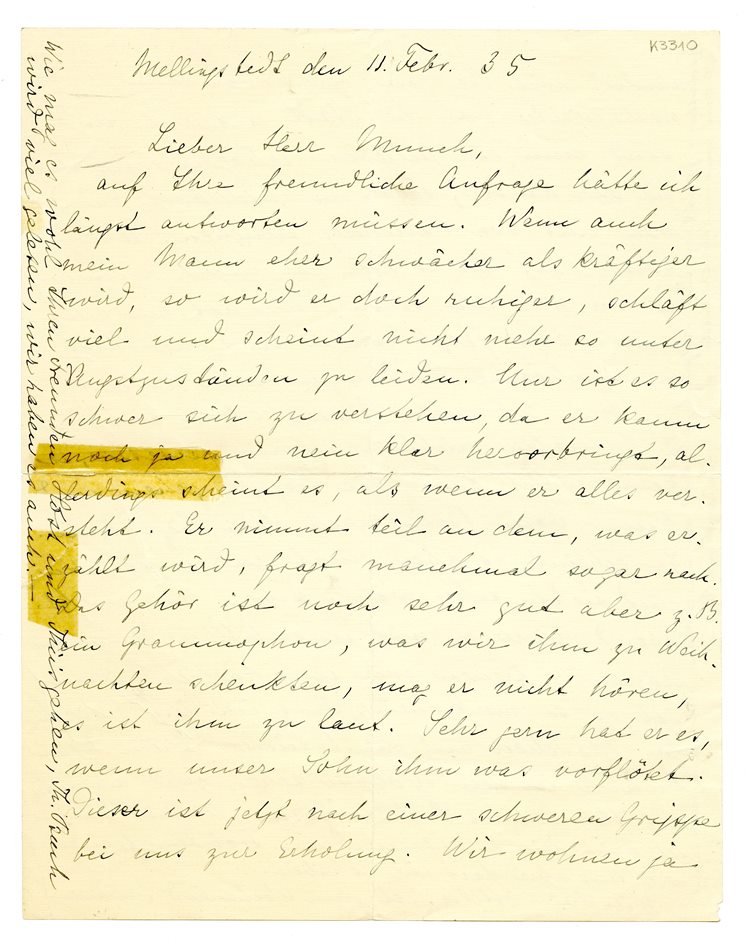 K3310
Mellingstedt den 11. Febr. 35
Lieber Herr Munch,
auf Ihre freundliche Anfrage hätte ich
längst antworten müssen. Wenn auch
mein Mann eher schwächer als kräftiger
wird, so wird er doch ruhiger, schläft
viel und scheint nicht mehr so unter
Angstzuständen zu leiden. Nur ist es so
schwer sich zu verstehen, da er kaum
noch ja und nein klar hervorbringt, al-
lerdings scheint es, als wenn er alles ver-
steht. Er nimmt teil an dem, was er-
zählt wird, fragt manchmal sogar nach.
Das Gehör ist noch sehr gut aber z. B.
ein Grammophon, was wir ihm zu Weih-
nachten schenkten, mag er nicht hören,
es ist ihm zu laut. Sehr gern hat er es,
wenn unser Sohn ihm was vorflötet.
Dieser ist jetzt nach einer schweren Grippe
bei uns zur Erholung. Wir wohnen ja
Wie mag es wohl Ihren Freunden Höst und Thiis gehen, Ihr Buch
wird viel gelesen, wir haben es auch.—